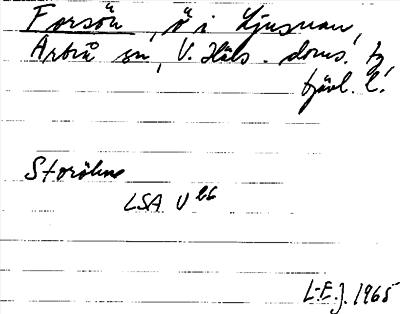 Forsön, ö i Ljusnan,
Arbrå sn, V. Häls. doms. tg,
Gävl. l.
Storöhne
LSA U 66
L-E.J. 1965